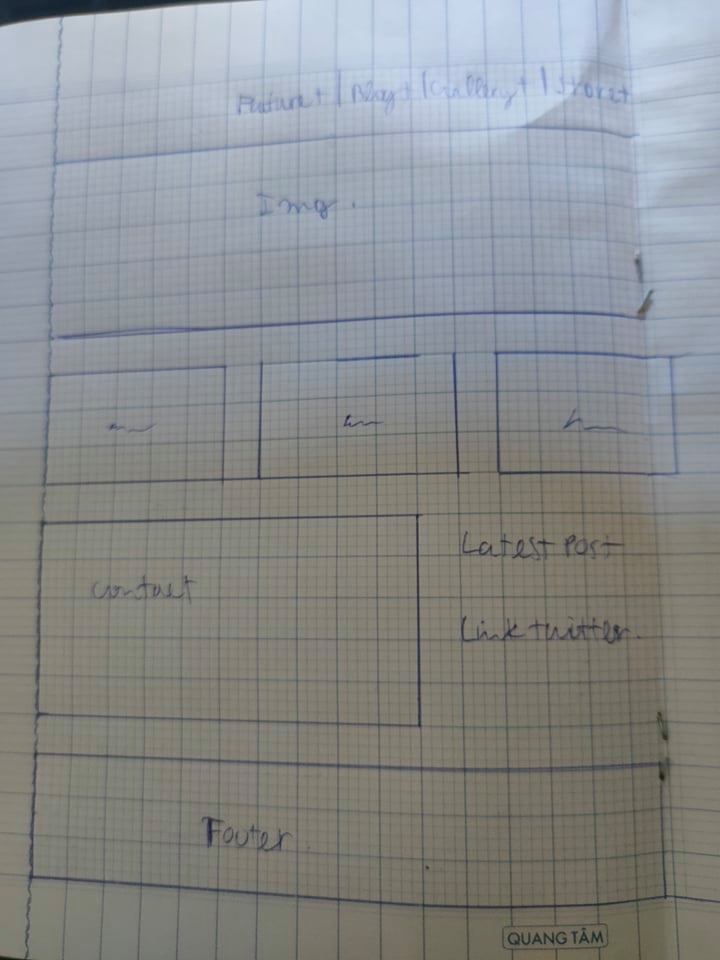 Future+ | Blog+ | Gallery+ | Store+
Img.
Contact
Latest Post
Link twitter.
Footer.
QUANG TÂM